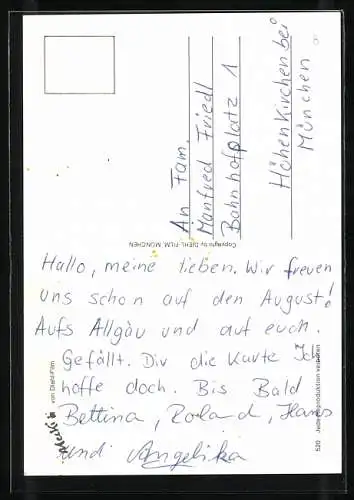 Hallo, meine lieben. Wir freuen
uns schon auf den August!
Aufs Allgäu und auf euch.
Gefällt. Dir die Karte Ich
hoffe doch. Bis Bald
Bettina, Roland, Hans
und Angelika
An Fam.
Manfred Friedl
Bahnhofplatz 1
Höhenkirchen bei
München
Copyright by DIEHL FILM, MÜNCHEN
von Diehl-Film
520 Jede Reproduktion verboten